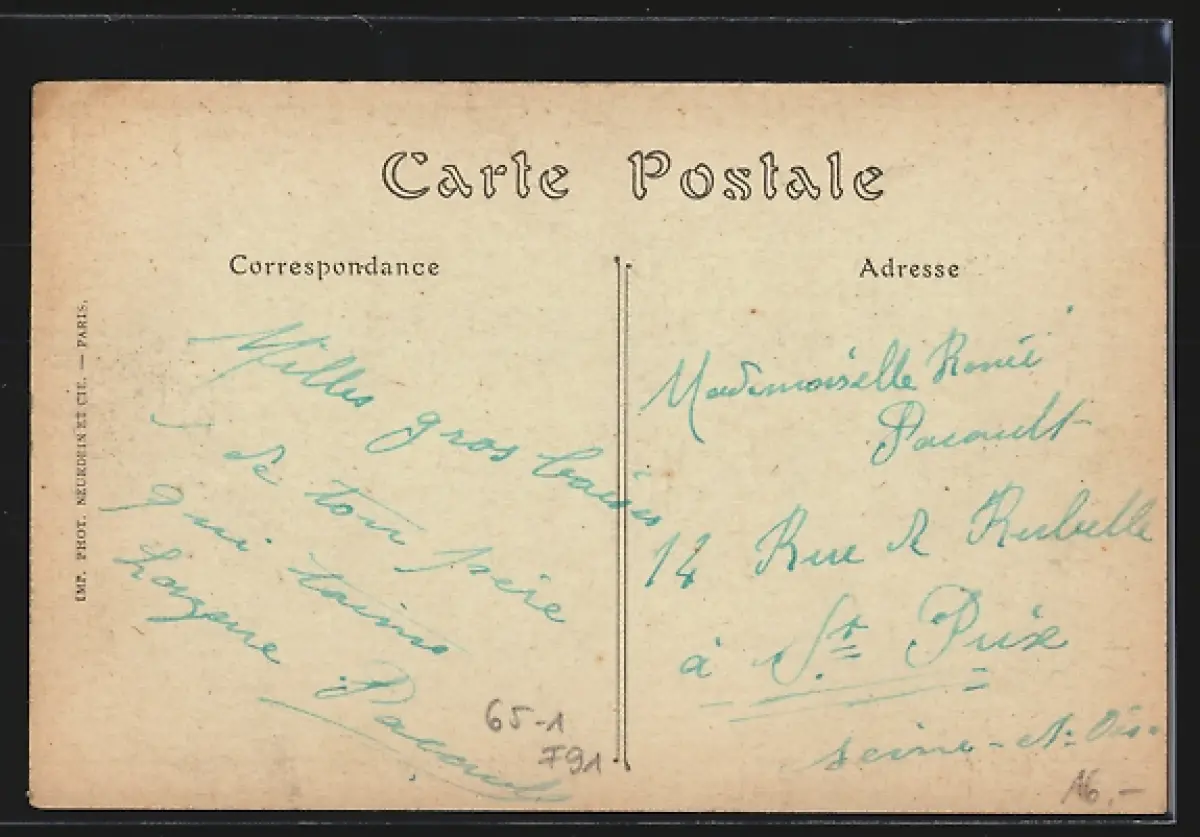 Carte Postale
Correspondance
Adresse
IMP. PHOT. NEURDEIN ET CIE. — PARIS.
Milles gros baisers
de ton père
qui taime
Pacault
Mademoiselle Renée
Pacault
14 Rue de Rubelle
à St Prix
Seine-et-Oise.
65-1
791
16.-